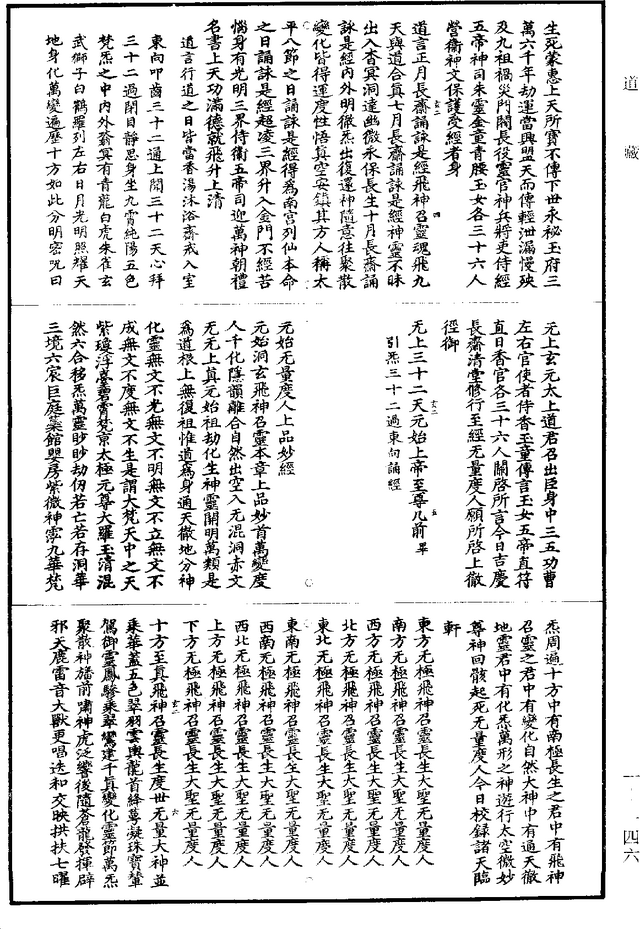 道藏
生死蒙惠上天所寶不傳下世永祕玉府三
萬六千年劫運當興盟天而傳輕泄漏慢殃
及九祖禍災門閥長役靈官神兵將吏侍經
五帝神司朱靈金童青腰玉女各三十六人
營衛神文保護受經者身
道言正月長齋誦詠是經飛神召靈魂飛九
天與道合真七月長齋誦詠是經神靈不昧
出入杳冥洞達幽微永保長生十月長齋誦
詠是經內外明徹炁出復還神隨意往聚散
變化皆得運度性悟真空安鎮其方人稱太
平八節之日誦詠是經得為南宮列仙本命
之日誦詠是經超凌三界升入金門不經苦
惱身有光明三界侍衛五帝司迎萬神朝禮
名書上天功滿德就飛升上清
道言行道之日皆當香湯沐浴齋戒入室
東向叩齒三十二通上聞三十二天心拜
三十二過閉目靜思身坐九霄純陽五色
梵炁之中內外蓊冥有青龍白虎朱雀玄
武獅子白鶴羅列左右日月光明照耀天
地身化萬變遍歷十方如此分明密咒曰
无上玄元太上道君召出臣身中三五功曹
左右官使者侍香玉童傳言玉女五帝直符
直日香官各三十六人關啓所言今日吉慶
長齋清堂修行至經无量度人願所啓上徹
徑御
无上三十二天元始上帝至尊几前畢
引炁三十二過東向誦經
元始无量度人上品妙經
元始洞玄飛神召靈本章上品妙首萬變度
人千化隱韻離合自然出空入无混洞赤文
无无上真元始祖劫化生神靈開明萬類是
為道根上無復祖惟道為身通天徹地分神
化靈無文不光無文不明無文不立無文不
成無文不度無文不生是謂大梵天中之天
紫瓊浮菱碧霄梵京太極元尊大羅玉清混
然六合移炁萬靈眇眇劫仞若亡若存洞華
三境六宸巨庭蘂館嬰房紫微神霄九華梵
炁周遍十方中有南極長生之君中有飛神
召靈之君中有變化自然大神中有通天徹
地靈君中有化炁萬形之神遊行太空微妙
尊神回骸起死无量度人今日校錄諸天臨
軒
東方无極飛神召靈長生大聖无量度人
南方无極飛神召靈長生大聖无量度人
西方无極飛神召靈長生大聖无量度人
北方无極飛神召靈長生大聖无量度人
東北无極飛神召靈長生大聖无量度人
東南无極飛神召靈長生大聖无量度人
西南无極飛神召靈長生大聖无量度人
西北无極飛神召靈長生大聖无量度人
上方无極飛神召靈長生大聖无量度人
下方无極飛神召靈長生大聖无量度人
十方至真飛神召靈長生度世无量大神並
乘華蓋五色翠羽雲輿龍首絳幕凝珠寶輦
駕御靈鳳驂乘翠鸞建千真變化靈節萬炁
聚散神旛前嘯神虎泛響後隨蒼龍發揮辟
邪天鹿雷音大獸更唱迭和交映拱扶七曜
一四六